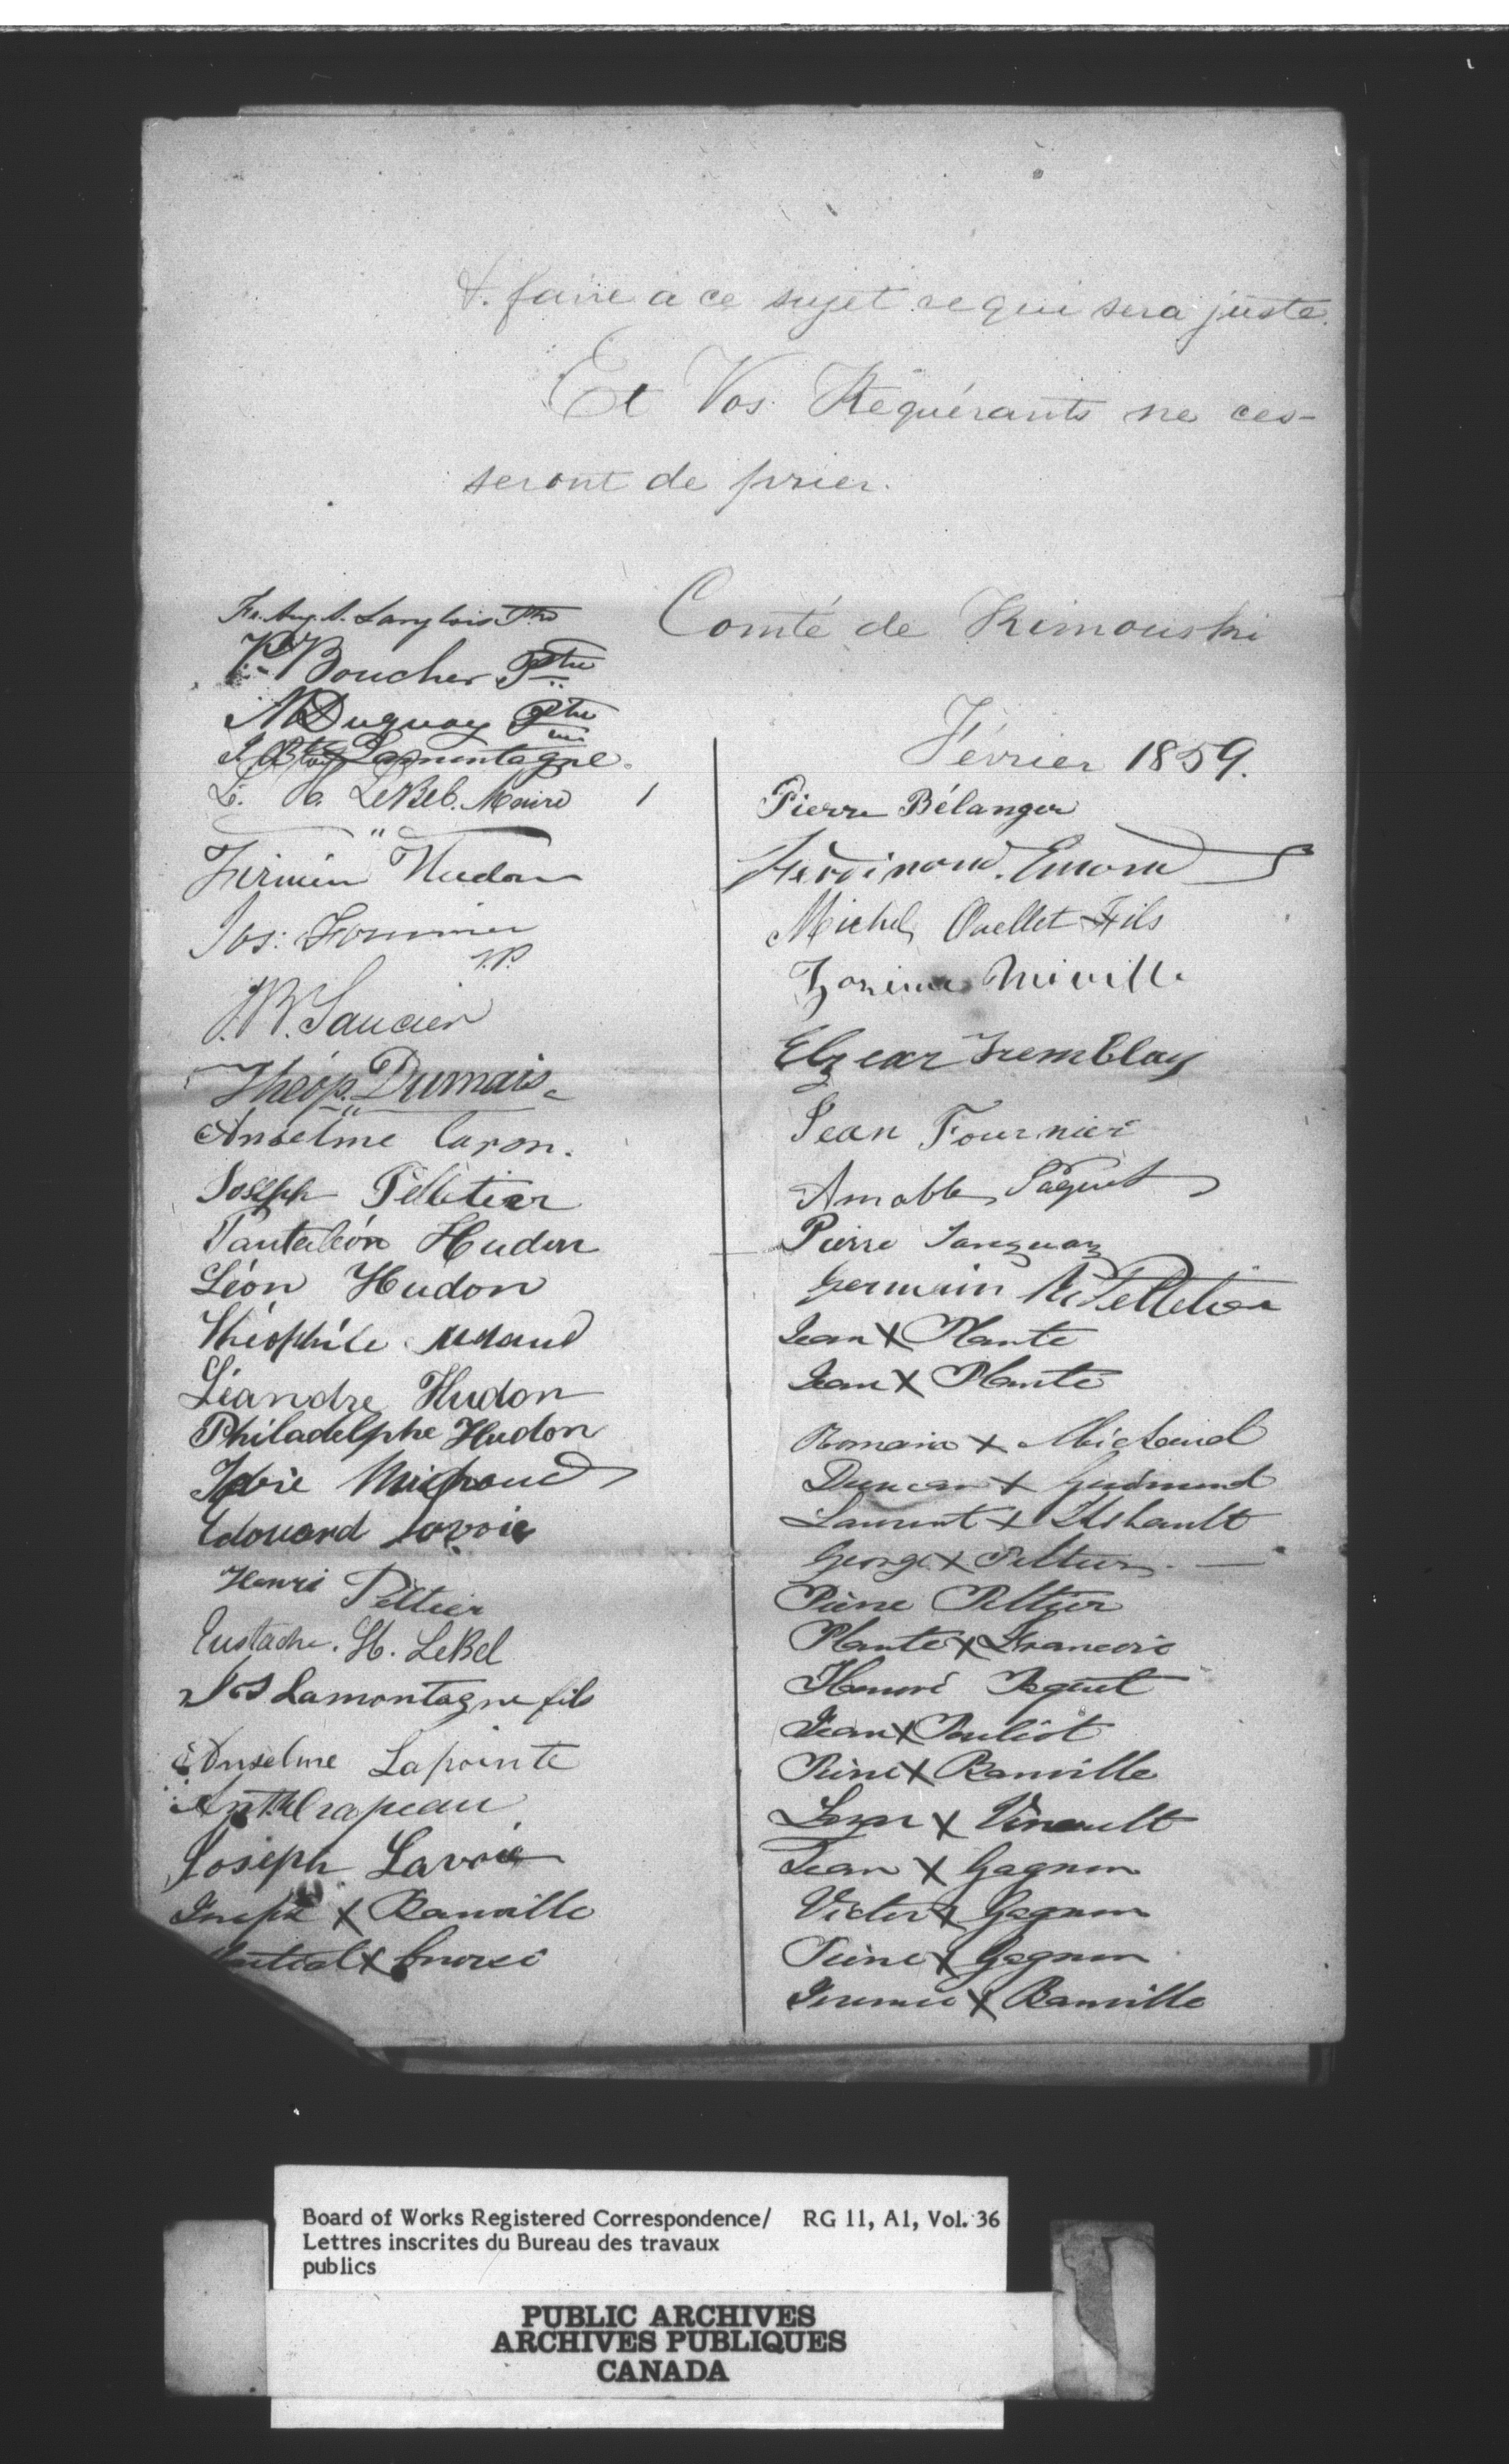 &. faire à ce sujet ce qui sera juste.
Et Vos Requérants ne ces-
seront de prier.
Comté de Rimouski
Février 1859.
Fr. Aug. S. Langlois Ptre
Boucher Ptre
Duguay Ptre
J. Bte Lamontagne.
LeBel. Maire
Firmin Hudon
Jos: Fournier
J.P.
J.B. Saucier
Théop. Dumais
Anselme Caron.
Joseph Pelletier
Pantaléon Hudon
Léon Hudon
Théophile
Léandre Hudon
Philadelphe Hudon
Michaud
Edouard Lavoie
Henri Peltier
Eustache. H. LeBel
Lamontagne fils
Anselme Lapointe
Crapeau
Joseph Lavoie
Joseph X Banville
X
Pierre Bélanger
Ferdinand. Emond
Michel Ouellet Fils
Zozime Miville
Elzear Tremblay
Jean Fournier
Amable Paquet
Pierre Tanguay
Germain Pelletier
Jean X Plante
Jean X Plante
Romain X Michaud
Duncan X Guimond
Laurent X
George X Peltier.
Pierre Peltier
Plante X Francois
Honoré Paquet
Jean X Pouliot
Pierre X Banville
X
Jean X Gagnon
Victor X Gagnon
Pierre X Gagnon
Jeremie X Banville
Board of Works Registered Correspondence/ RG 11, A1, Vol. 36
Lettres inscrites du Bureau des travaux
publics
PUBLIC ARCHIVES
ARCHIVES PUBLIQUES
CANADA